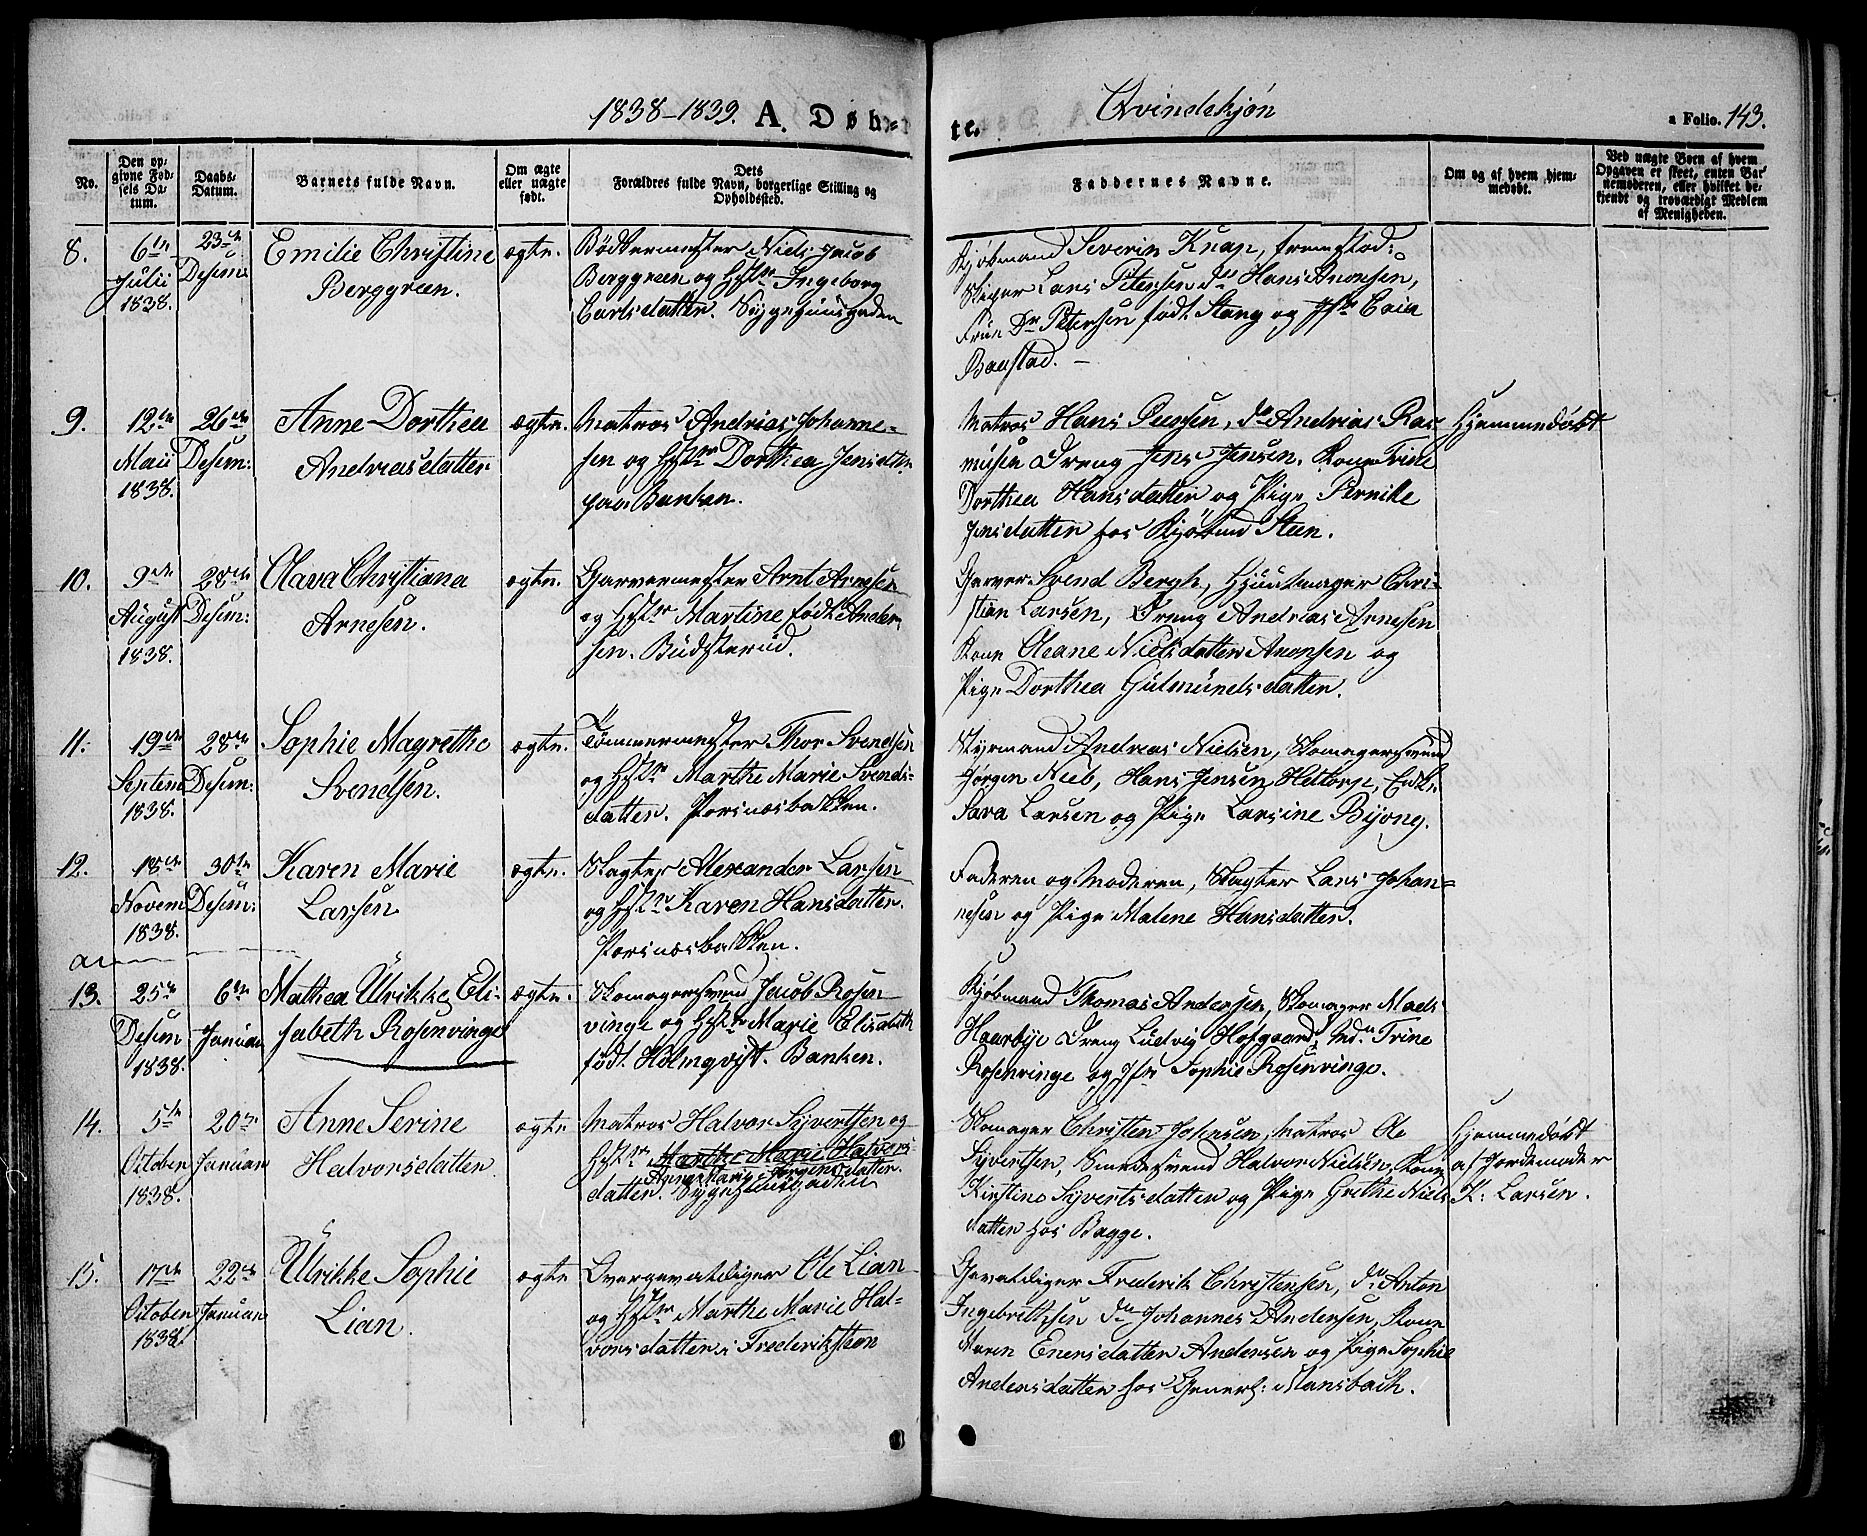 1838-1839. A. Døb-
te. Qvindekjøn
a Folio. 143.
No.
Den op-
givne Fød-
sels Da-
tum.
Daabs-
Datum.
Barnets fulde Navn.
Om ægte
eller uægte
født.
Dets
Forældres fulde Navn, borgerlige Stilling og
Opholdssted.
Faddernes Navne.
Om og af hvem hjem-
medøbt.
Ved uægte Børn af hvem
Opgaven er skeet, enten Bar-
nemoderen, eller hvilket be-
kjendt og troværdigt Medlem
af Menigheden.
8.
6te
Julii
1838.
23de
Desem:
Emilie Christine
Berggreen.
ægte.
Bødkermester Niels Jacob
Berggreen og Hstr Ingeborg
Carlsdatter. Sygehuusgaden
Kjøbmand Severin Knap,
Skiper Lars Petersen do Hans Aronsen,
Frue Dr Petersen født Stang og Jfr Caia
Baustad. -
9.
12te
Maii
1838.
26de
Desem:
Anne Dorthea
Andreasdatter
ægte.
Matros Andreas Johanne-
sen og Hstr Dorthea Jensdtr
paa Banken.
Matros Hans Jensen, do Andreas Ras-
musen Dreng Jens Jensen. Kone Trine
Dorthea Hansdatter og Pige Pernike
Jensdatter hos Kjøbmd Steen.
Hjemmedøbt
10.
9de
August
1838.
28de
Desem:
Olava Christiana
Arnesen.
ægte.
Garvermester Arnt Arnesen
og Hstr Martine født Ander-
sen. Büdsterud.
Garver Svend Bergh, Hattmager Chri-
stian Larsen, Dreng Andreas Arnesen
Kone Oleane Nielsdatter Aronsen og
Pige Dorthea Gulmundsdatter.
11.
19de
Septem
1838.
28de
Desem:
Sophie Magrethe
Svendsen.
ægte.
Tømmermester Thor Svendsen
og Hstr Marthe Marie Svends-
datter. Porsnesbakken.
Styrmand Andreas Nielsen, Skomagersvend
Jørgen Nieb, Hans Jensen Heltorp, Enke
Sara Larsen og Pige Larsine Byong.
12.
18de
Novem
1838.
30te
Desem:
Karen Marie
Larsen
ægte.
Slagter Alexander Larsen
og Hstr Karen Hansdatter.
Porsnesbakken.
Faderen og Moderen, Slagter Lars Johan-
nesen og Pige Malene Hansdatter.
13.
25de
Desem
1838.
6te
Januar
Mathea Ulrikke Eli-
sabeth Rosenvinge
ægte.
Skomagersvend Jacob Rosen
vinge og Hstr Marie Elisabeth
født Holmqvist. Banken.
Kjøbmand Thomas Andersen, Skomager Mads
Haarbye Dreng Ludvig Hofgaard, Md. Trine
Rosenvinge og Jfr Sophie Rosenvinge.
14.
5te
October
1838.
20de
Januar
Anne Serine
Halvorsdatter
ægte
Matros Halvor Syvertsen og
Hstr Marthe Marie Halvors-
Anne Marie Jørgensdatter.
datter. Sygehuusgaden
Skomager Christen Johnsen, Matros Ole
Syvertsen, Smedesvend Halvor Nielsen, Kone
Kirstine Syvertsdatter og Pige Grethe Niels
datter hos Bagge.
Hjemmedøbt
af Jordemoder
K. Larsen.
15.
17de
October
1838.
22de
Januar
Ulrikke Sophie
Lian.
ægte
Overgevaldiger Ole Lian
og Hstr Marthe Marie Hal-
vorsdatter i Frederiksteen
Gevaldiger Frederik Christensen, do Anton
Ingebrethsen do Johannes Andersen, Kone
Maren Enersdatter Andersen og Pige Sophie
Andersdatter hos General: Mansbach.